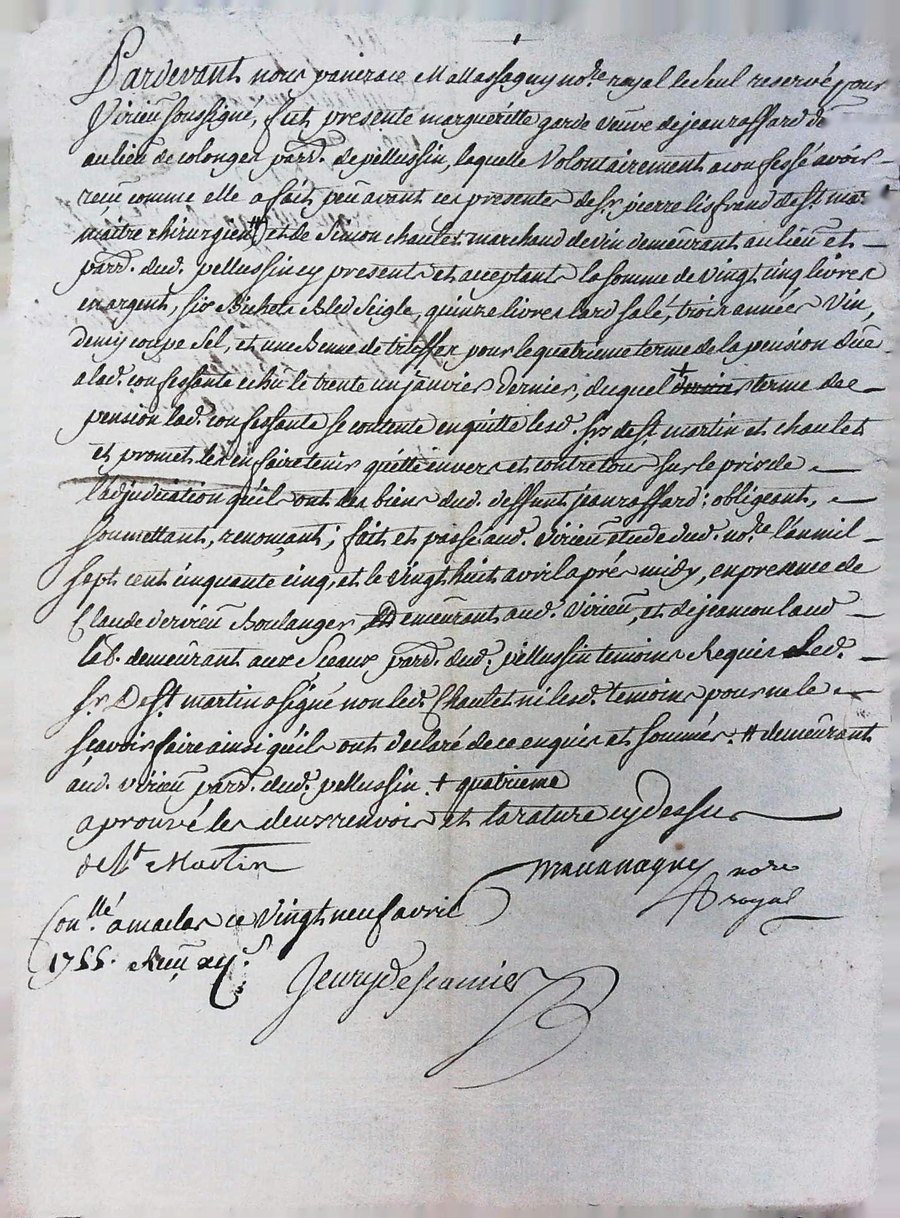 Pardevant nous panerace Mallassagny no.re royal le seul reservé pour
Virieu soussigné, fut presente marguéritte garde veuve de jean raffard de
au lieu de colonger parr. de pellussin, laquelle Volontairement a confessé avoir
receu comme elle a fait peu avant ces presentes de sr. pierre lisfrand de st. mar
maitre chirurgien # et de Simon chaulet marchand de vin demeurant au lieu et
parr. dud. pellussin cy presents et acceptants la somme de vingt cinq livres
en argent, six Bichets Bled Seigle, quinze livres lard salé, trois années Vin,
demy coupe sel, et une Benne de treffes pour le quatrieme terme de la pension düe
a lad. confessante echu le trente un janvier dernier, duquel + dernier terme de
pension lad. confessante se contente en quitte lesd. srs. de st. martin et chaulet
et promet les en faire tenir quitte envers et contre tous sur le prix de
l'adjudication quils ont des biens dud. deffunt jean raffard; obligeant,
soumettant, renonçant; fait et passé aud. Virieu etude dud. no.re l'an mil
sept cent cinquante cinq, et le vingt huit avril aprés midy, en presence de
Claude verrieu Boulanger, Demeurant aud. Virieu, et de jean coulaud
lab. demeurant aux Sceaux parr. dud. pellussin temoins Requis Led.
sr. De st. martin a signé non led. Chaulet ni lesd. temoins pour ne le
sçavoir faire ainsi quils ont declaré de ce enquis et sommés. # demeurant
aud. virieu parr. dud. pellussin. + quatrieme
aprouvé les deux renvois et la rature cy dessus
de st Martin
no.re royal
Con.llé a maclas ce Vingt neuf avril
1755. Reçu